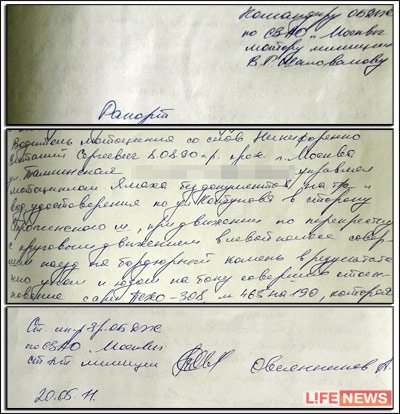 Командиру ОБДПС
по СЗАО г. Москвы
майору милиции
В.Р. Шаповалову
Рапорт
Водитель мотоцикла со слов Никифоренко
Евгений Сергеевич 20890 г.р. прож. г. Москва
ул. Таллинская управлял
мотоциклом Ямаха без документов на тр. и
вод. удостоверения по ул. Кулакова в сторону
Строгинского ш., при движении по перекрестку
с круговым движением в левой полосе совер-
шил наезд на бордюрный камень в результате
чего упал и юзом на боку совершил столк-
новение с а/м Пежо-308 м 465 на 190, которая
Ст. ин-р 3р. ОБДПС
по СЗАО г. Москвы
ст. л-т милиции Овсянников А.
20.05.11.
LIFE NEWS